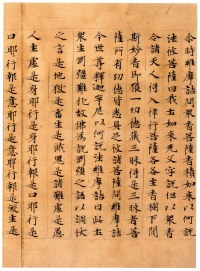 尒時維摩詰問衆香菩薩香積如來以何說
法彼菩薩曰我土如來无文字說但以衆香
令諸天人得入律行菩薩各各坐香樹下聞
斯妙香即獲一切德藏三昧得是三昧者菩
薩所有功德皆悉具足彼諸菩薩問維摩詰
今世尊釋迦牟尼以何說法維摩詰曰此土
衆生剛強難化故佛爲說剛強之語以調伏
之言是地獄是畜生是餓鬼是諸難處是愚
人生處是身耶行是身耶行報是口耶行是
口耶行報是意耶行是意耶行報是煞生是